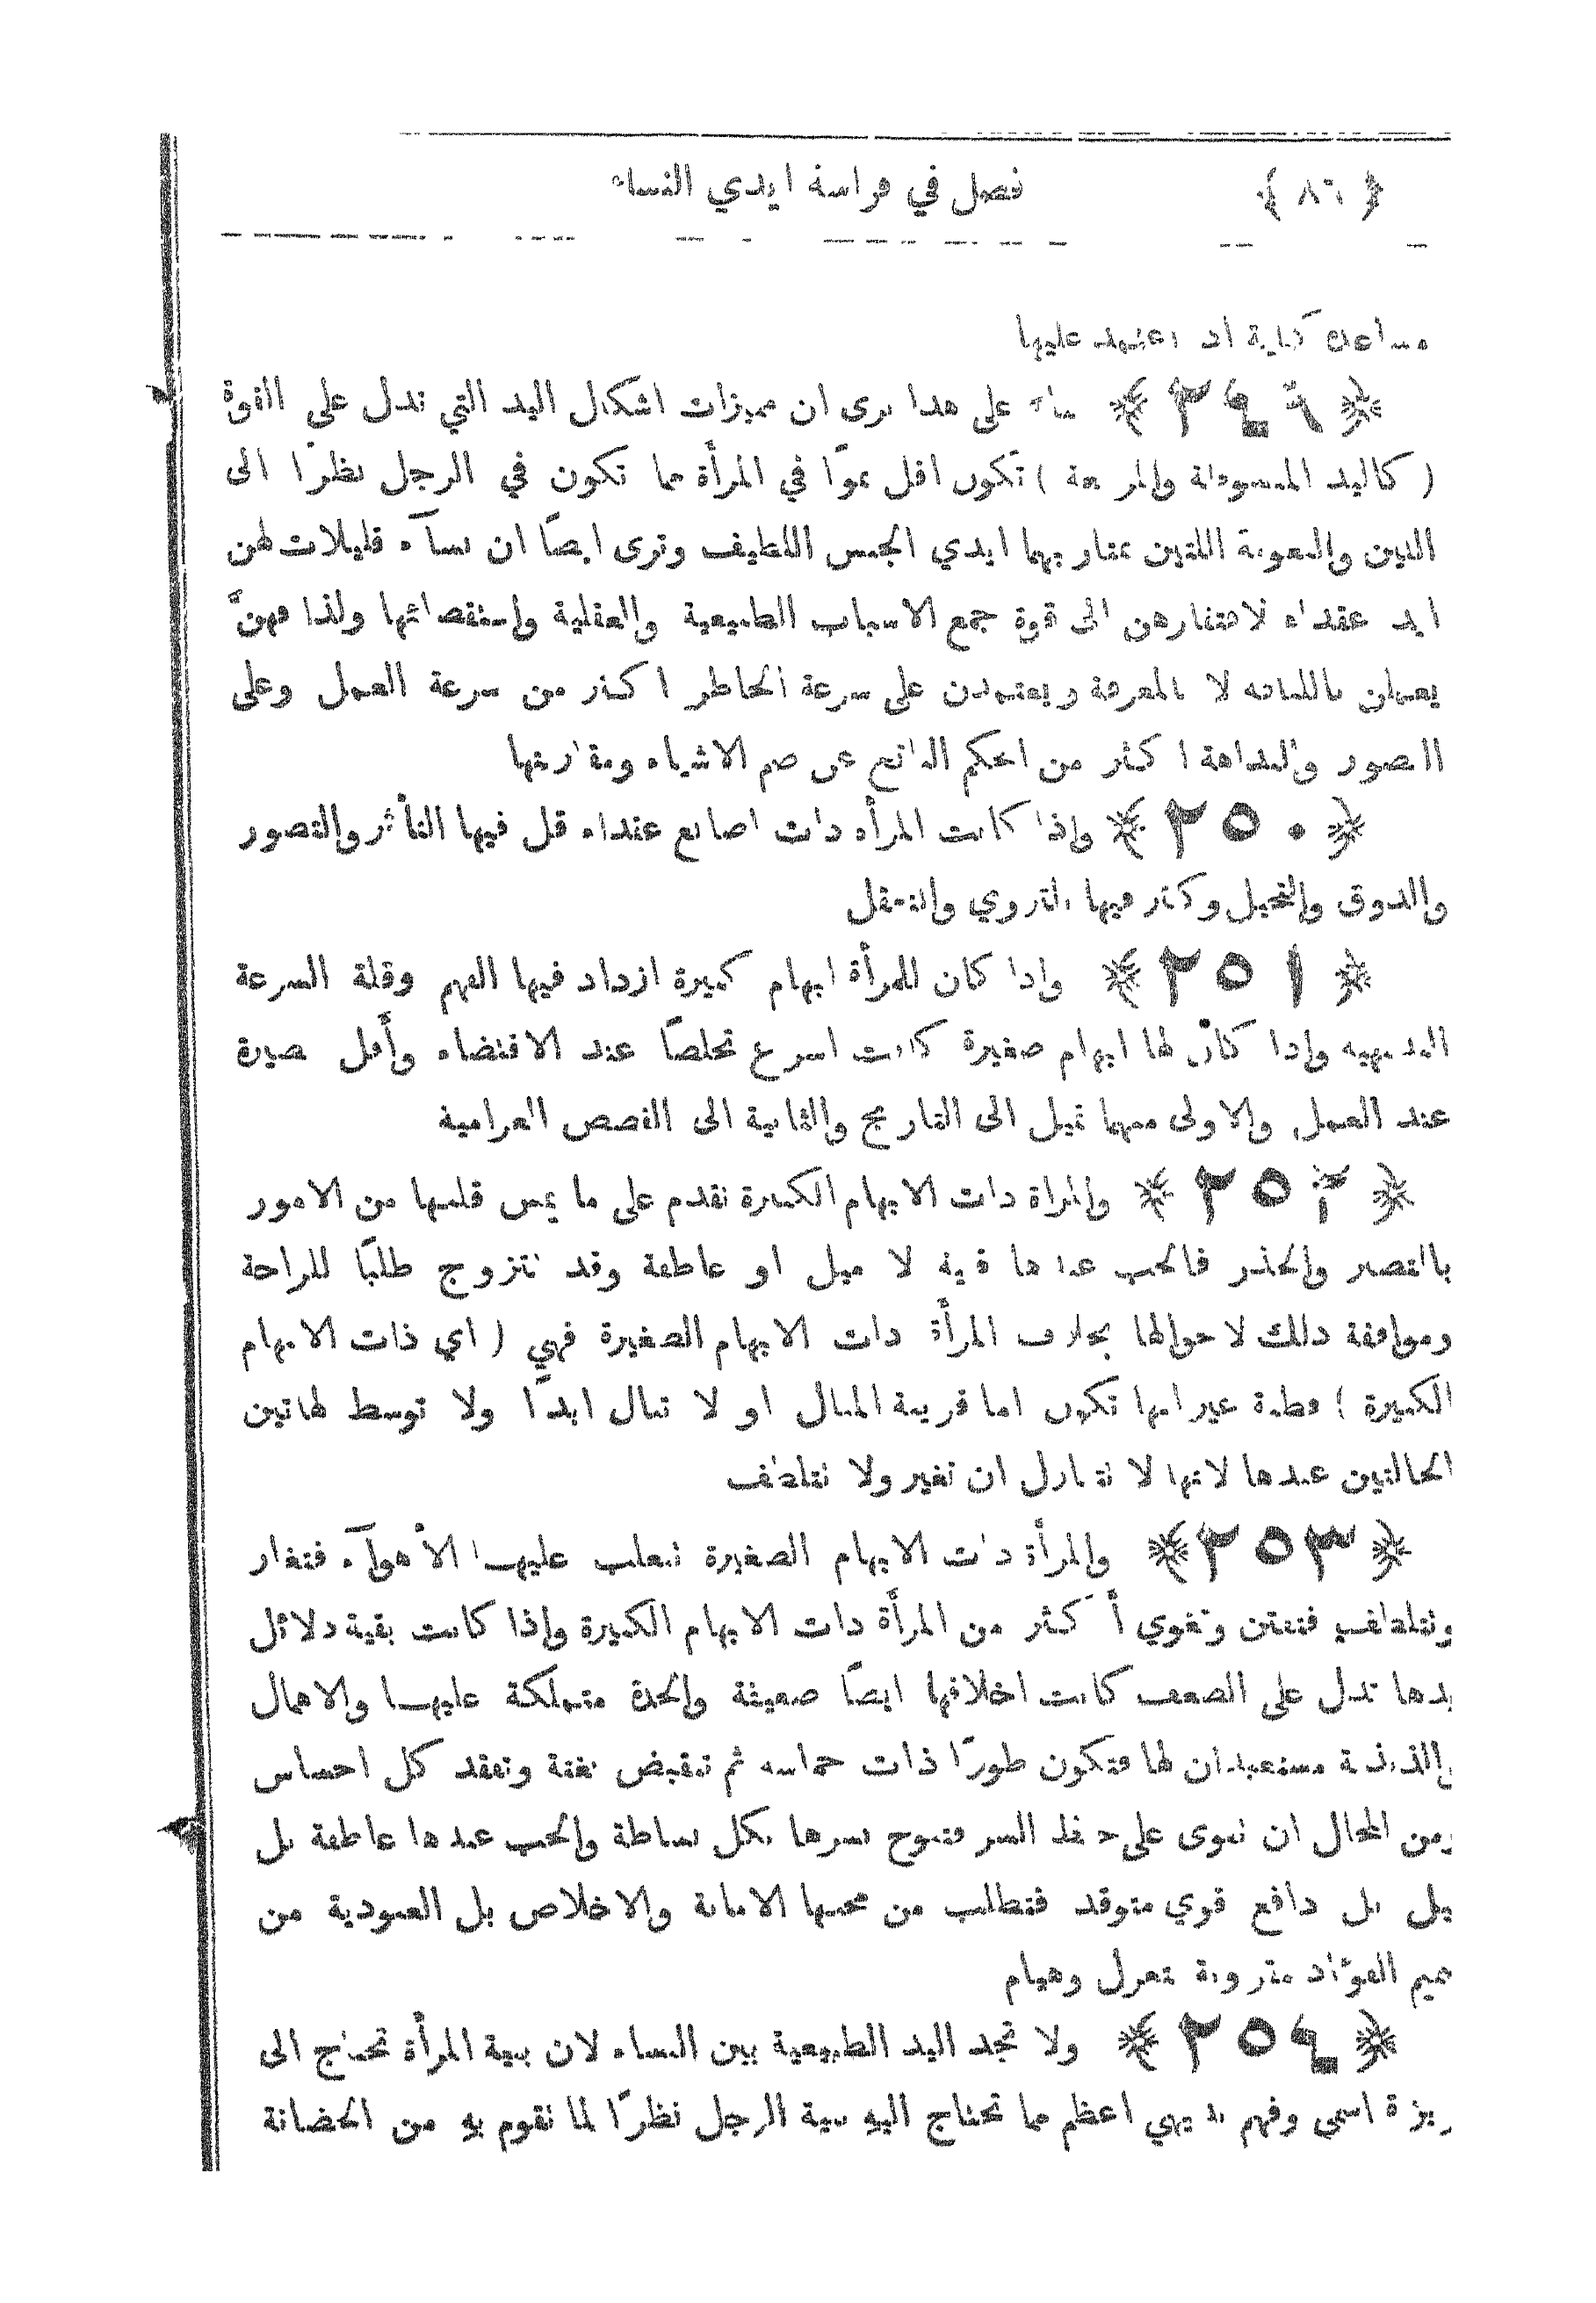 ﴿ ٨٦ ﴾ فصل في فراسة ايدي النساء
اعتمد عليها
﴿ ٢٤٩ ﴾ بناء على هذا نرى ان مميزات اشكال اليد التي تدل على القوة
( كاليد المبسوطة والمربعة ) تكون اقل نموًا في المرأة مما تكون في الرجل نظرًا الى
اللين والنعومة اللتين تمتاز بهما ايدي الجنس اللطيف وترى ايضًا ان نسآء قليلات لهن
ايد عقداء لافتقارهن الى قوة جمع الاسباب الطبيعية والعقلية واستقصائها ولذا فهنَّ
يعملن باللباقة لا بالمعرفة ويعتمدن على سرعة الخاطر اكثر من سرعة العمل وعلى
التصور والبداهة اكثر من الحكم الناتج عن ضم الاشياء ومقارنتها
﴿ ٢٥٠ ﴾ واذا كانت المرأه ذات اصابع عقداء قل فيها التأثر والتصور
والذوق والتخيل وكثر فيها التروي والتعقل
﴿ ٢٥١ ﴾ واذا كان للمرأة ابهام كبيرة ازداد فيها الفهم وقلة السرعة
البديهيه واذا كان لها ابهام صغيرة كانت اسرع تخلصًا عند الاقتضاء وأقل خبرة
عند العمل والاولى منهما تميل الى التاريخ والثانية الى القصص الغرامية
﴿ ٢٥٢ ﴾ والمرأة ذات الابهام الكبيرة تقدم على ما يمس قلبها من الامور
بالتبصر والحذر فالحب عندها فيه لا ميل او عاطفة وقد تتزوج طلبًا للراحة
وموافقة ذلك لاحوالها بخلاف المرأة ذات الابهام الصغيرة فهي ( اي ذات الابهام
الكبيرة ) فطنة غير انها تكون اما قريبة المنال او لا تنال ابدًا ولا توسط لهاتين
الحالتين عندها لانها لا تتنازل ان تغير ولا تتلطف
﴿ ٢٥٣ ﴾ والمرأة ذات الابهام الصغيرة تتغلب عليها الأهوآء فتغار
وتتلطف فتفتن وتغوي أكثر من المرأة ذات الابهام الكبيرة واذا كانت بقية دلائل
يدها تدل على الضعف كانت اخلاقها ايضًا ضعيفة والحدة متملكة عليها والاهمال
والذبذبة مستعبدان لها فتكون طورًا ذات حماسه ثم تنقبض بغتة وتفقد كل احساس
ومن المحال ان تقوى على حفظ السر فتبوح بسرها بكل بساطة والحب عندها عاطفة بل
ميل بل دافع قوي متوقد فتطلب من محبها الامانة والاخلاص بل العبودية من
صميم الفؤاد مقرونة بتغزل وهيام
﴿ ٢٥٤ ﴾ ولا تجد اليد الطبيعية بين النساء لان بنية المرأة تحتاج الى
غريزة اسمى وفهم بديهي اعظم مما تحتاج اليه بنية الرجل نظرًا لما تقوم به من الحضانة